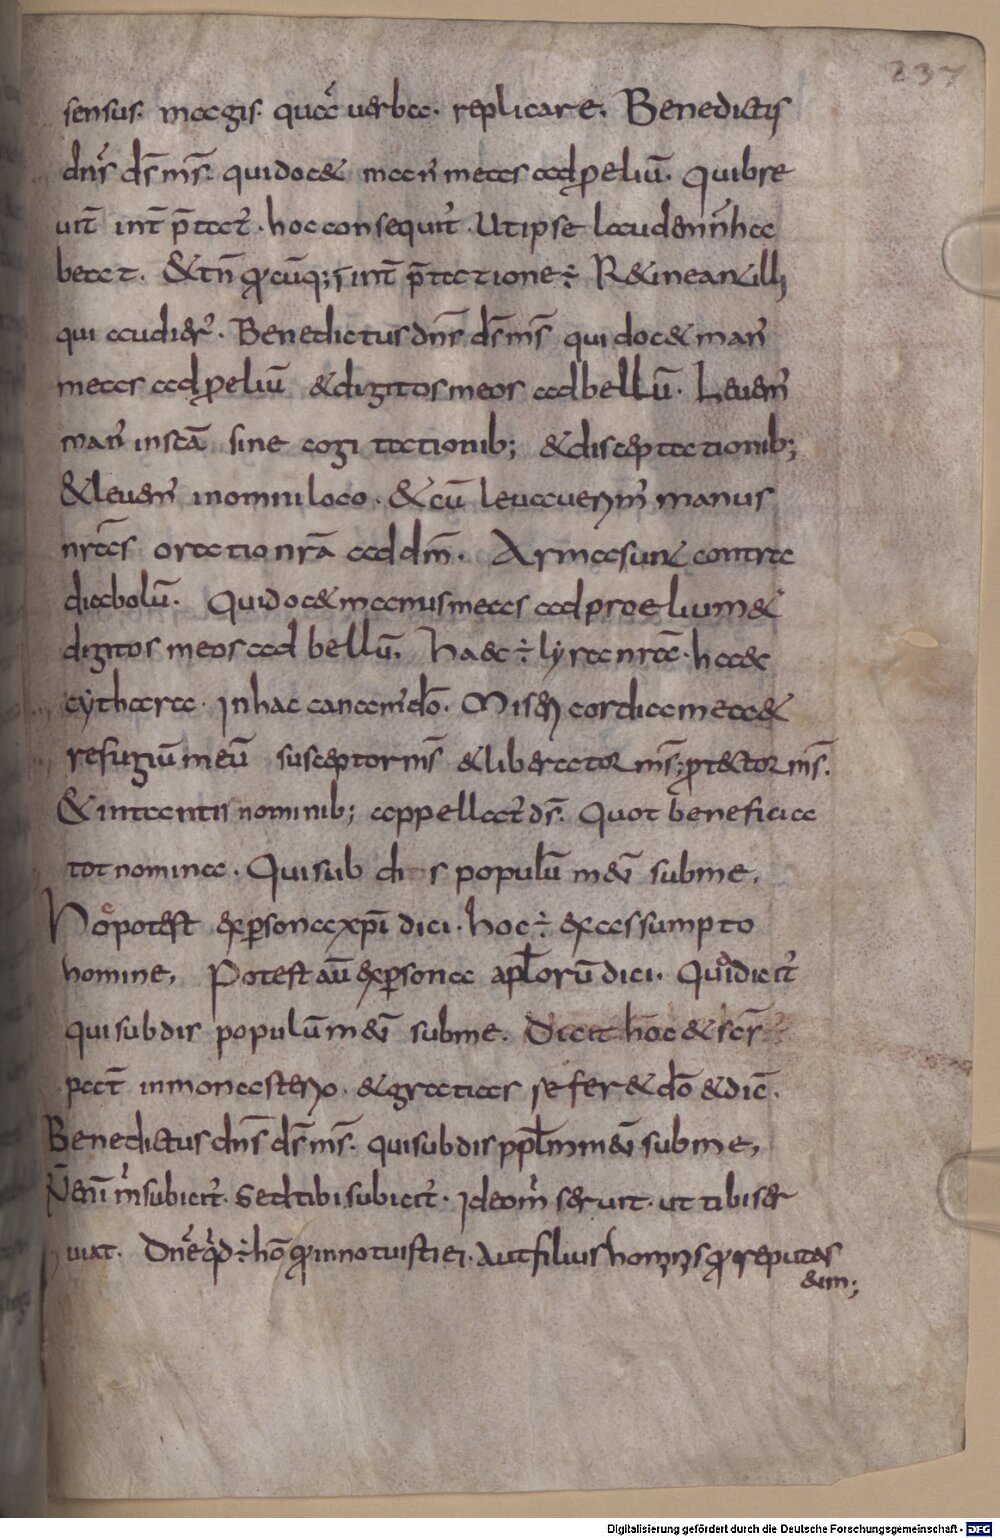 237
sensus. magis. quā uerba. replicare. Benedictus
dn̄s ds̄ ms̄. qui docet man̄ meas ad p̄eliū. Quibre
uit̄ int̄ p̄tat̄. hoc consequit̄. Ut ipse laudem n̄ ha
beat. &tn̄ q̄cūq; int̄ p̄tatione ÷ R&ineant illi
qui audier̄. Benedictus dn̄s ds̄ ms̄ qui docet man̄
meas ad p̄eliū &digitos meos ad bellū. Leuem̄
man̄ in scā sine cogitationib; &disceptationib;
&leuem̄ in omni loco. &cū leuauerim̄ manus
nr̄as oratio nr̄a ad dm̄. Arma sunt contra
diabolū. Qui docet manus meas ad proelium &
digitos meos ad bellū. haec ÷ lyra nr̄a. haec
cythara. In hac canam dō. Misericordia mea &
refugiū meū susceptor ms̄ &liberator ms̄; p̄tector ms̄.
&in tantis nominib; appellat̄ ds̄. Quot beneficia
tot nomina. Qui sub di s populū meū sub me.
Hoc potest ex p̄sona xp̄i dici. hoc ÷ ex assumpto
homine, Potest aū ex p̄sona apl̄orū dici. Qui dicit̄
qui subdis populū meū sub me. Dicit hoc &
pat̄ in monasterio. &gratias refer& dō &dic̄.
Benedictus dn̄s ds̄ ms̄. qui subdis ppl̄m meū sub me,
N̄ eni m̄ subicit̄. Sed tibi subicit̄. Ideo m̄ seruit. ut tibi ser
uiat. Dn̄e qd̄ ÷ hō q̄ innotuisti ei. Aut filius hominis q̄ reputas
eum;
Digitalisierung gefördert durch die Deutsche Forschungsgemeinschaft - DFG